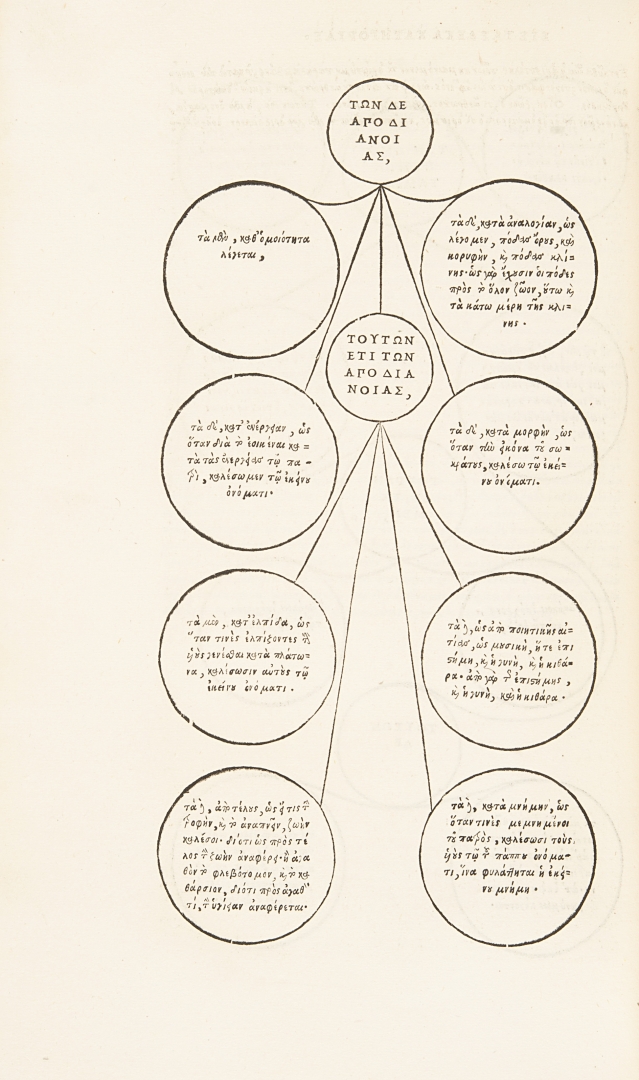 ΤΩΝ ΔΕ
ΑΠΟ ΔΙ
ΑΝΟΙ
ΑΣ,
τὰ μὲν, καθ' ὁμοιότητα
λέγεται,
τὰ δὲ, κατὰ ἀναλογίαν, ὡς
λέγομεν, πόδας ὄρους, καὶ
κορυφὴν, καὶ πόδας κλί=
νης· ὡς γὰρ ἔχουσιν οἱ πόδες
πρὸς τὸ ὅλον ζῶον, οὕτω καὶ
τὰ κάτω μέρη τῆς κλί=
νης.
ΤΟΥΤΩΝ
ΕΤΙ ΤΩΝ
ΑΠΟ ΔΙΑ
ΝΟΙΑΣ,
τὰ δὲ, κατ' ἐνέργειαν, ὡς
ὅταν διὰ τὸ ἐοικέναι κα=
τὰ τὰς ἐνεργείας τῷ πα-
τρὶ, καλέσωμεν τῷ ἐκείνου
ὀνόματι.
τὰ δὲ, κατὰ μορφὴν, ὡς
ὅταν τὴν εἰκόνα τοῦ σω=
κράτους, καλέσω τῷ ἐκεί=
νου ὀνόματι.
τὰ μὲν, κατ' ἐλπίδα, ὡς
ὅταν τινὲς ἐλπίζοντες τοὺς
υἱοὺς γενέσθαι κατὰ πλάτω=
να, καλέσωσιν αὐτοὺς τῷ
ἐκείνου ὀνόματι.
τὰ δὲ, ὡς ἀπὸ ποιητικῆς αἰ=
τίας, ὡς μουσικὴ, ἥτε ἐπι
στήμη, καὶ ἡ γυνὴ, καὶ ἡ κιθά=
ρα· ἀπὸ γὰρ τῆς ἐπιστήμης,
καὶ ἡ γυνὴ, καὶ ἡ κιθάρα.
τὰ δὲ, ἀπὸ τέλους, ὡς εἴ τις τὴν
τροφὴν, καὶ τὸ ἀναπνεῖν, ζωὴν
καλέσοι· διότι ὡς πρὸς τέ
λος τὴν ζωὴν ἀναφέρει·
βὸν τὸ φλεβότομον, καὶ τὸ κα
θάρσιον, διότι πρὸς ἀγαθόν
τι, τὴν ὑγίειαν ἀναφέρεται.
τὰ δὲ, κατὰ μνήμην, ὡς
ὅταν τινὲς μεμνημένοι
τοῦ πατρὸς, καλέσωσι τοὺς
υἱοὺς τῷ τοῦ πάππου ὀνόμα-
τι, ἵνα φυλάττηται ἡ ἐκεί=
νου μνήμη.